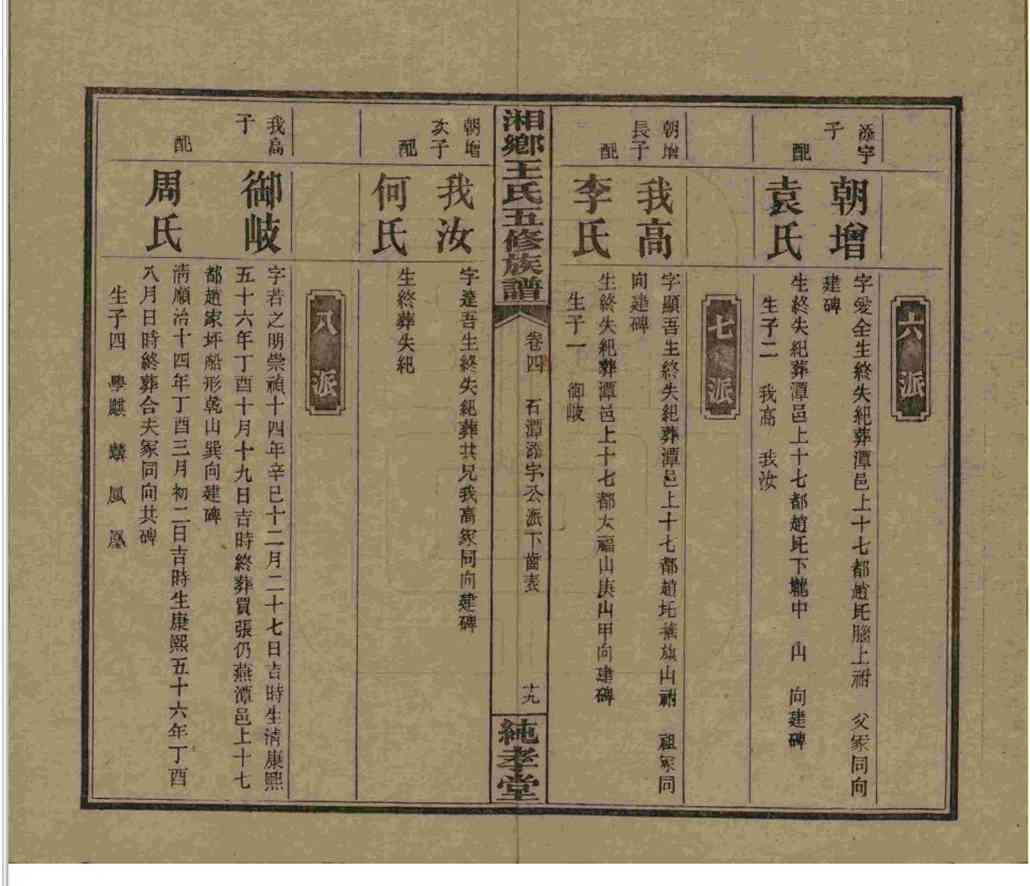 六派
添字子
朝增
字愛全生終失紀葬潭邑上十七都趙圫腦上祔 父冢同向
建碑
配
袁氏
生終失紀葬潭邑上十七都趙圫下壠中 山 向建碑
生子二 我高 我汝
七派
朝增長子
我高
字顯吾生終失紀葬潭邑上十七都趙圫旗山祔 祖冢同
向建碑
配
李氏
生終失紀葬潭邑上十七都大福山庚山甲向建碑
生子一 御岐
湘鄉王氏五修族譜
卷四 石潭添字公派下齒表
十九
純孝堂
朝增次子
我汝
字達吾生終失紀葬共兄我高冢同向建碑
配
何氏
生終葬失紀
八派
我高子
御岐
字若之明崇禎十四年辛巳十二月二十七日吉時生清康熙
五十六年丁酉十月十九日吉時終葬買張仍燕潭邑上十七
都趙家坪船形乾山巽向建碑
配
周氏
清順治十四年丁酉三月初二日吉時生康熙五十六年丁酉
八月日時終葬合夫冢同向共碑
生子四 學麒 鳳